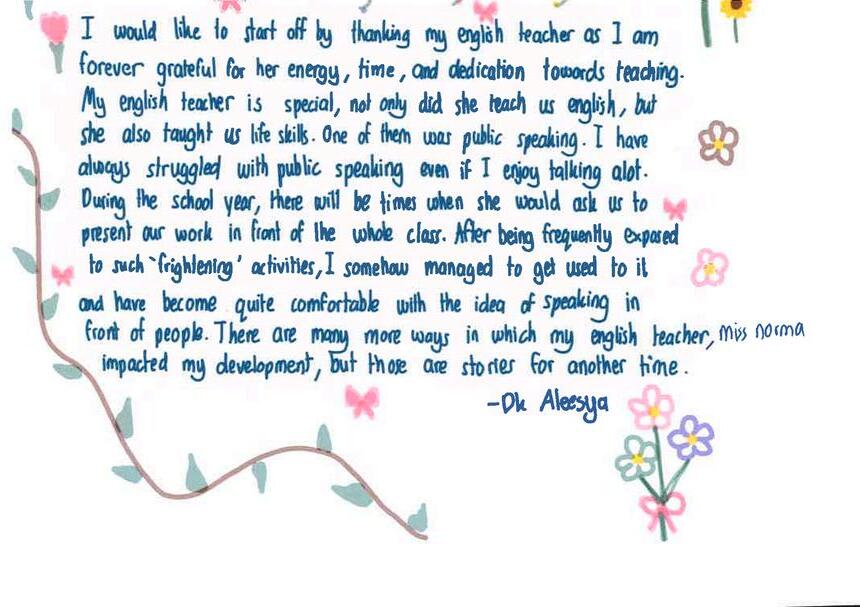 I would like to start off by thanking my english teacher as I am
forever grateful for her energy, time, and dedication towards teaching.
My english teacher is special, not only did she teach us english, but
she also taught us life skills. One of them was public speaking. I have
always struggled with public speaking even if I enjoy talking alot.
During the school year, there will be times when she would ask us to
present our work in front of the whole class. After being frequently exposed
to such 'frightening' activities, I somehow managed to get used to it
and have become quite comfortable with the idea of speaking in
front of people. There are many more ways in which my english teacher, miss norma
impacted my development, but those are stories for another time.
-Dk Aleesya